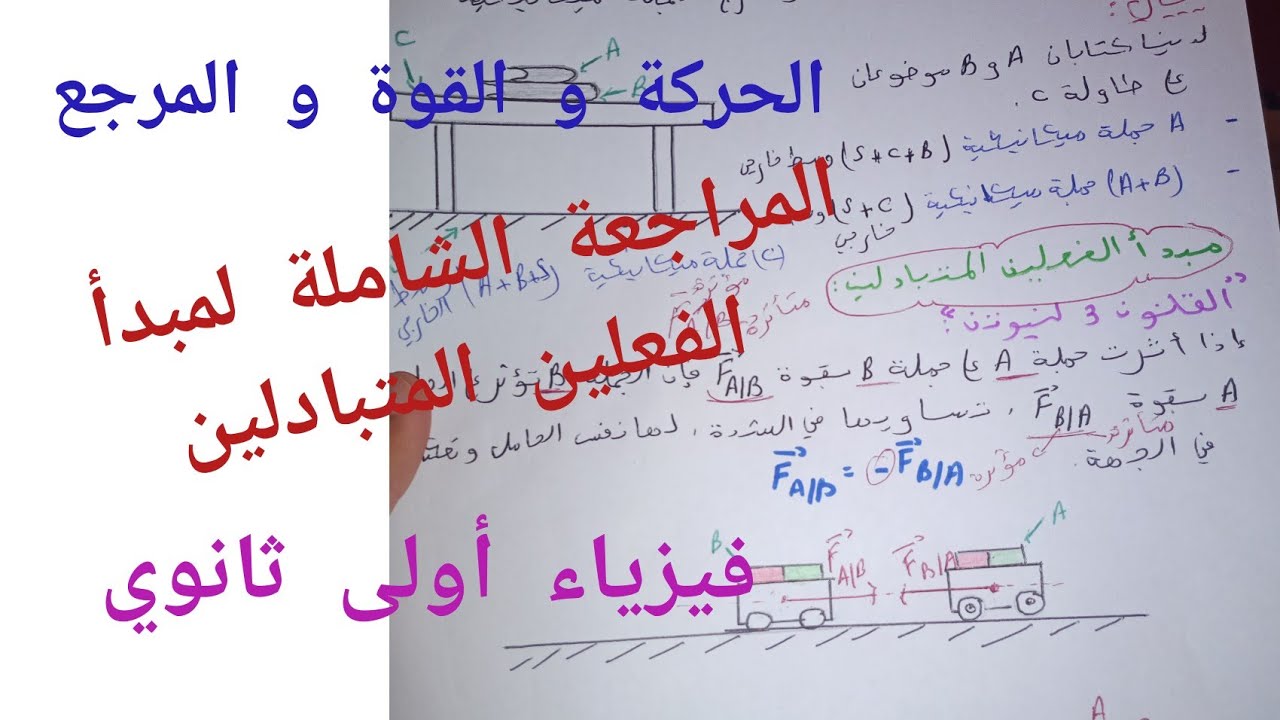 الحركة و القوة و المرجع
المراجعة الشاملة لمبدأ
الفعلين المتبادلين
فيزياء أولى ثانوي
مثال:
لدينا كتابان A و B موضوعان
ع طاولة C.
- A جملة ميكانيكية (S+C+B) وسط خارجي
- (A+B) جملة ميكانيكية (S+C)
خارجي
(C) جملة ميكانيكية (A+B+S)
الخارجي
مبدأ الفعلين المتبادلين:
"القانون 3 لنيوتن"
مؤثرة
متأثرة
إذا أثرت جملة A ع جملة B بقوة F A/B فإن الجملة B تؤثر ع
A بقوة F B/A، تساويها في الشدة، لها نفس الحامل و
في الجهة.
متأثرة
مؤثرة
F A/B = - F B/A
C
A
B
B
F A/B
F B/A
A
A